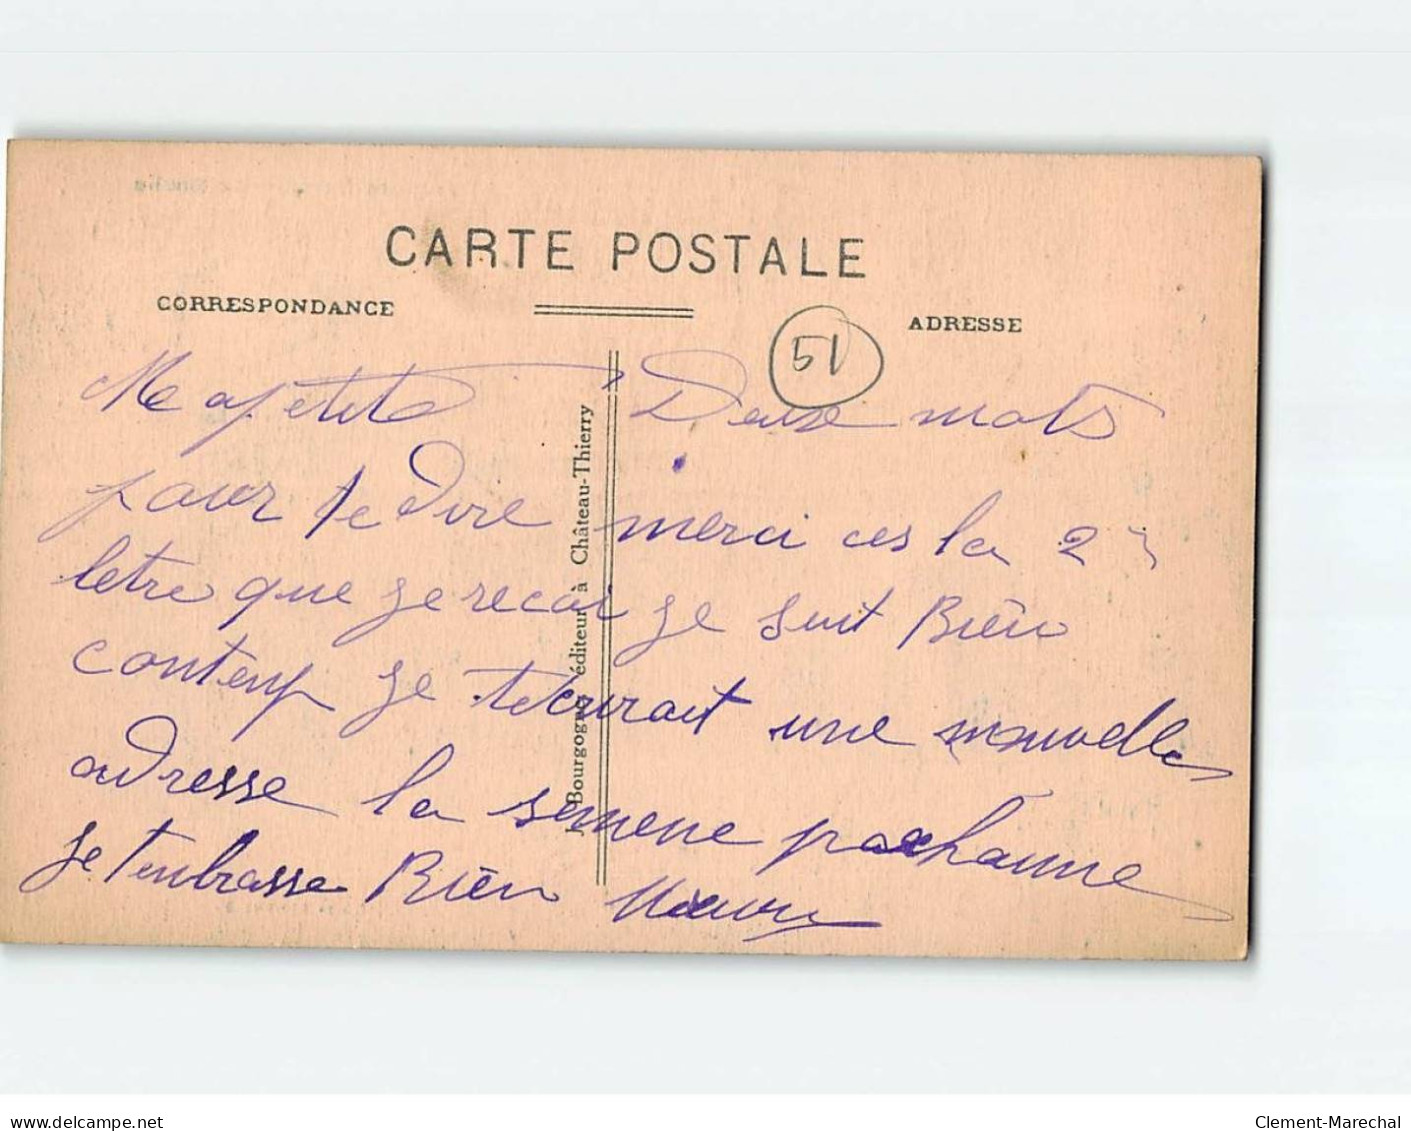 CARTE POSTALE
CORRESPONDANCE
ADRESSE
51
Ma petite Deux mots
pour te dire merci ces la 2
letre que je recoi je suit Bien
contenp je tecurait une nouvelle
adresse la semene prochaine
je t'enbrasse Bien
J. Bourgogne, éditeur à Château-Thierry
www.delcampe.net
Clement-Marechal